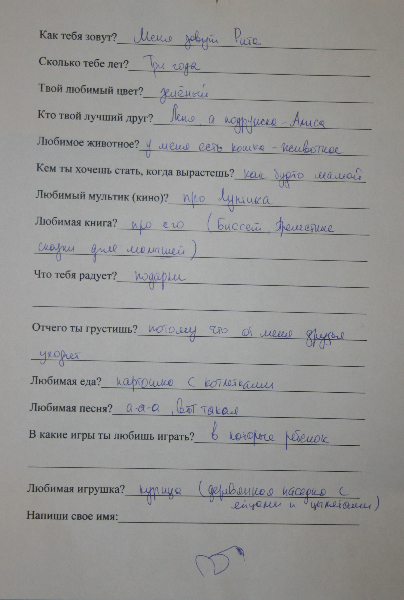 Как тебя зовут? Меня зовут Рита
Сколько тебе лет? Три года
Твой любимый цвет? зелёный
Кто твой лучший друг? Лёня а подружка - Алиса
Любимое животное? у меня есть кошка - животное
Кем ты хочешь стать, когда вырастешь? как будто мамой
Любимый мультик (кино)? про Лунтика
Любимая книга? про его (Биссет
сказки для малышей)
Что тебя радует? подарки
Отчего ты грустишь? потому что от меня друзья
уходят
Любимая еда? картошка с котлетками
Любимая песня? а-а-а, вот такая
В какие игры ты любишь играть? в которые ребёнок
Любимая игрушка? курица (деревянная наседка с
яйцами и цыплятами)
Напиши свое имя: